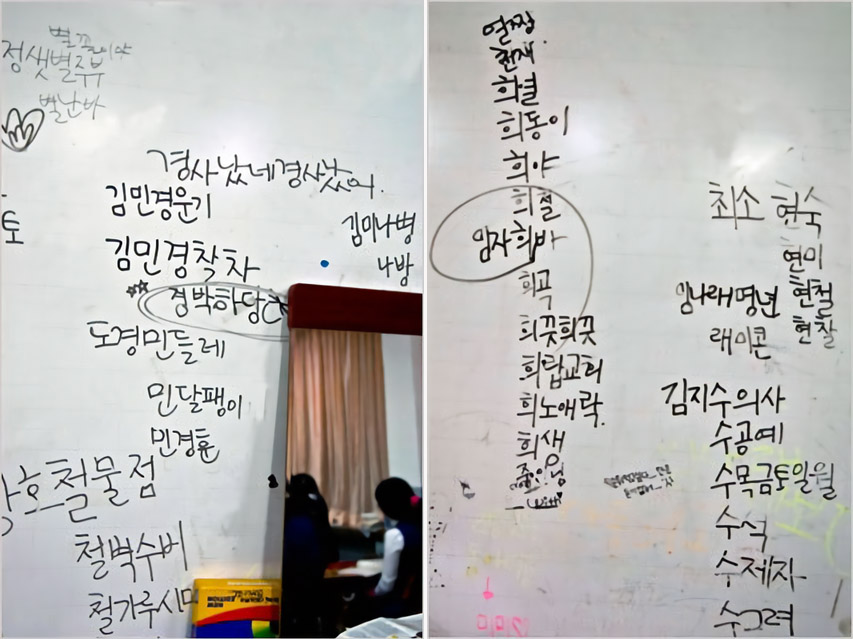 별꼴이야
정샛별쥬
별난바
경사났네경사났어.
김민경운기
김미나병
나방
토
김민경착차
경박하당
도경민들레
민달팽이
민경훈
호철물점
철벽수비
철가루시
얼짱
천재
희열
희동이
희야
희철
임자희바
희곡
희끗희끗
희랍교회
희노애락.
희생
최소 현숙
현미
임나래명년 현철
래미콘 현찰
김지수의사
수공예
수목금토일월
수석
수제자
수그려